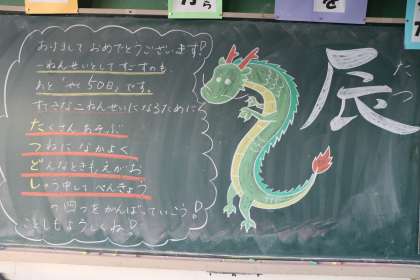 あけまして おめでとうございます！
一ねんせいとしてすごすのも、
あと「やく50日」です。
すてきな二ねんせいになるために
たくさんあそぶ
つねになかよく
どんなときもえがお
しゅう中してべんきょう
の四つをがんばっていこう！
ことしもよろしくね！
辰
たつ